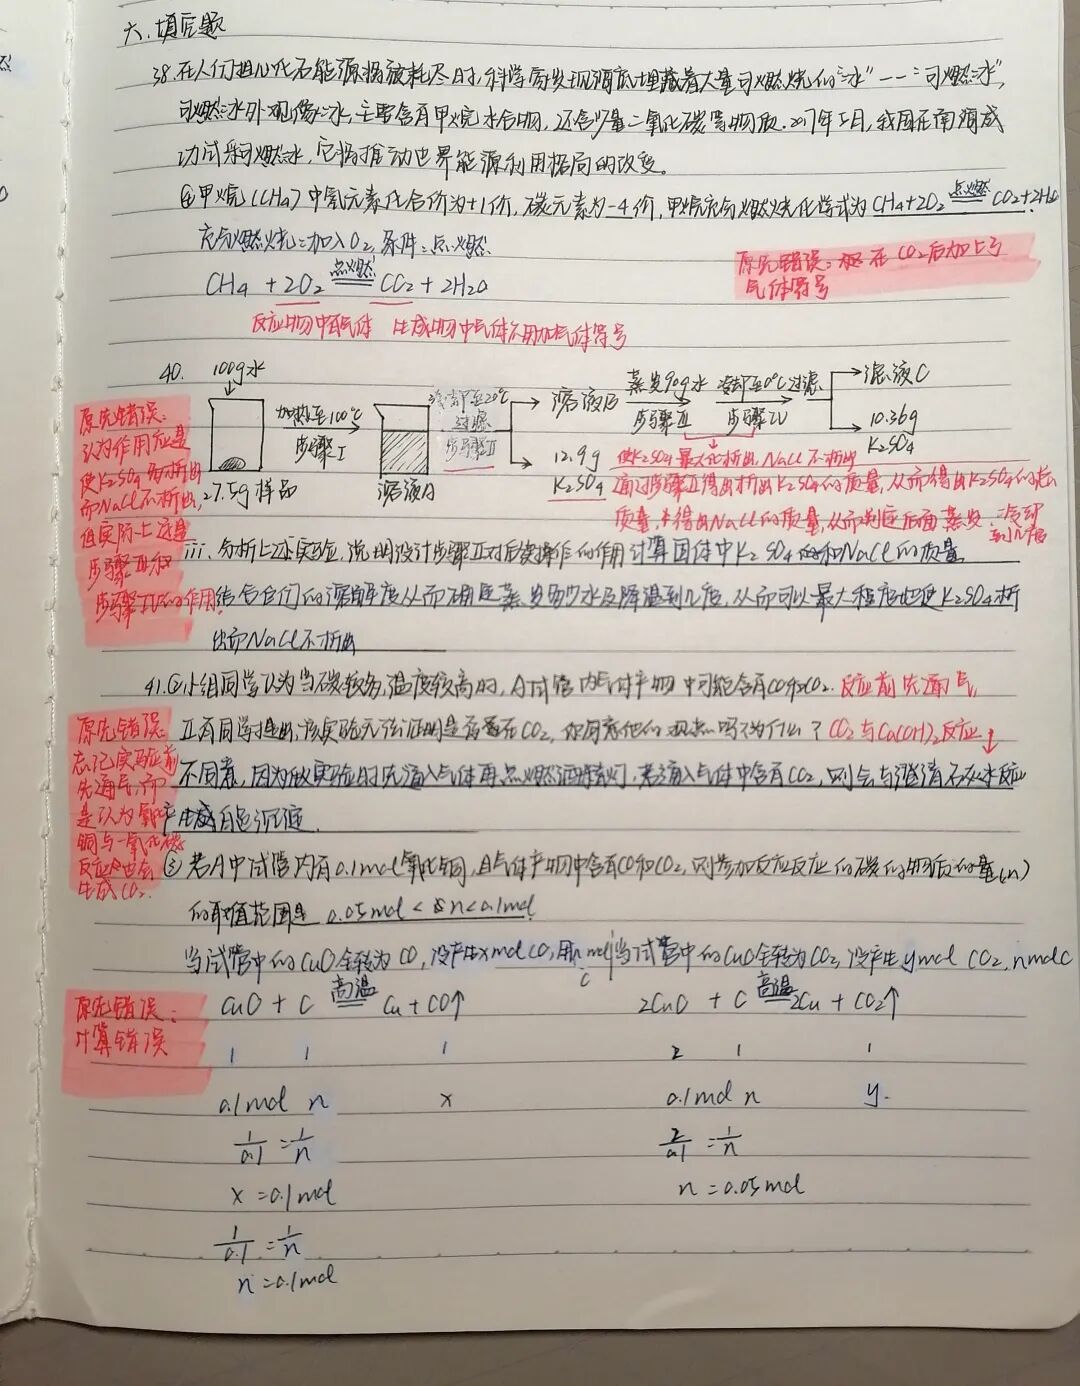 六、填空题
38.在人们担心化石能源将被耗尽时,科学家发现海底埋藏着大量可燃烧的"冰"——"可燃冰",
可燃冰外观像冰,主要含有甲烷水合物,还含少量二氧化碳等物质.2017年5月,我国在南海成
功试采可燃冰,它将推动世界能源利用格局的改变。
①甲烷(CH4)中氢元素化合价为+1价,碳元素为-4价,甲烷充分燃烧化学式为CH4+2O2 点燃 CO2+2H2O
充分燃烧:加入O2,条件:点燃
原先错误:在CO2后加上了
气体符号
CH4 + 2O2 点燃 CO2 + 2H2O
反应物中有气体 生成物中气体不用加气体符号
40. 100g水
27.5g样品
加热至100℃
步骤Ⅰ
溶液A
冷却至20℃
过滤
步骤Ⅱ
溶液B
12.9g
K2SO4
蒸发90g水
步骤Ⅲ
冷却至0℃过滤
步骤Ⅳ
滤液C
10.36g
K2SO4
原先错误:
认为作用应是
使K2SO4多析出
而NaCl不析出,
但实际上这是
步骤Ⅲ和
步骤Ⅳ的作用.
使K2SO4最大化析出,NaCl不析出
通过步骤Ⅱ得出析出K2SO4的质量,从而得出K2SO4的总
质量,得出NaCl的质量,从而判定后面蒸发、冷却
到几度
iii、分析上述实验,说明设计步骤Ⅱ对后续操作的作用计算固体中K2SO4和NaCl的质量
结合它们的溶解度从而确定蒸发多少水及降温到几度,从而可以最大程度地使K2SO4析
出而NaCl不析出
41.②小组同学认为当碳较多,温度较高时,A试管内气体产物中可能含有CO和CO2. 反应前先通气
原先错误:
忘记实验前
先通气,而
是认为氧化
铜与一氧化碳
反应也会
生成CO2.
又有同学提出,该实验无法证明是否存在CO2,你同意他的观点吗?为什么?CO2与Ca(OH)2反应↓
不同意,因为做实验时先通入气体再点燃酒精灯,若通入气体中含有CO2,则会与澄清石灰水反应
产生白色沉淀.
③若A中试管内有0.1mol氧化铜,且气体产物中含有CO和CO2,则参加反应反应的碳的物质的量(n)
的取值范围是 0.05mol<n<0.1mol
当试管中的CuO全转为CO,设产生xmolCO,用nmolC
当试管中的CuO全转为CO2,设产生ymol CO2,nmolC
原先错误:
计算错误
CuO + C 高温 Cu + CO↑
1 1 1
0.1mol n x
1/0.1 = 1/n
x = 0.1mol
1/0.1 = 1/n
n = 0.1mol
2CuO + C 高温 2Cu + CO2↑
2 1 1
0.1mol n y.
2/0.1 = 1/n
n = 0.05mol